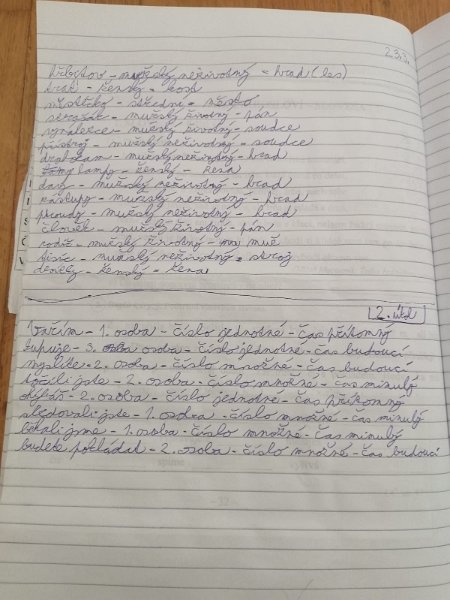 23.3.
hřbitov - mužský neživotný - hrad (les)
- ženský - kost
městečko - střední - město
- mužský životný - pán
- mužský životný - soudce
- mužský neživotný - soudce
- mužský neživotný - hrad
lampy - ženský - žena
- mužský neživotný - hrad
zástupy - mužský neživotný - hrad
proudy - mužský neživotný - hrad
člověk - mužský životný - pán
rodič - mužský životný - muž
- mužský neživotný - stroj
- ženský - žena
2. úkol
Vařím - 1. osoba - číslo jednotné - čas přítomný
kupuje - 3. osoba - číslo jednotné - čas budoucí
myslíte - 2. osoba - číslo množné - čas budoucí
točili jste - 2. osoba - číslo množné - čas minulý
- 2. osoba - číslo jednotné - čas přítomný
sledovali jste - 1. osoba - číslo množné - čas minulý
jsme - 1. osoba - číslo množné - čas minulý
budete pokládat - 2. osoba - číslo množné - čas budoucí